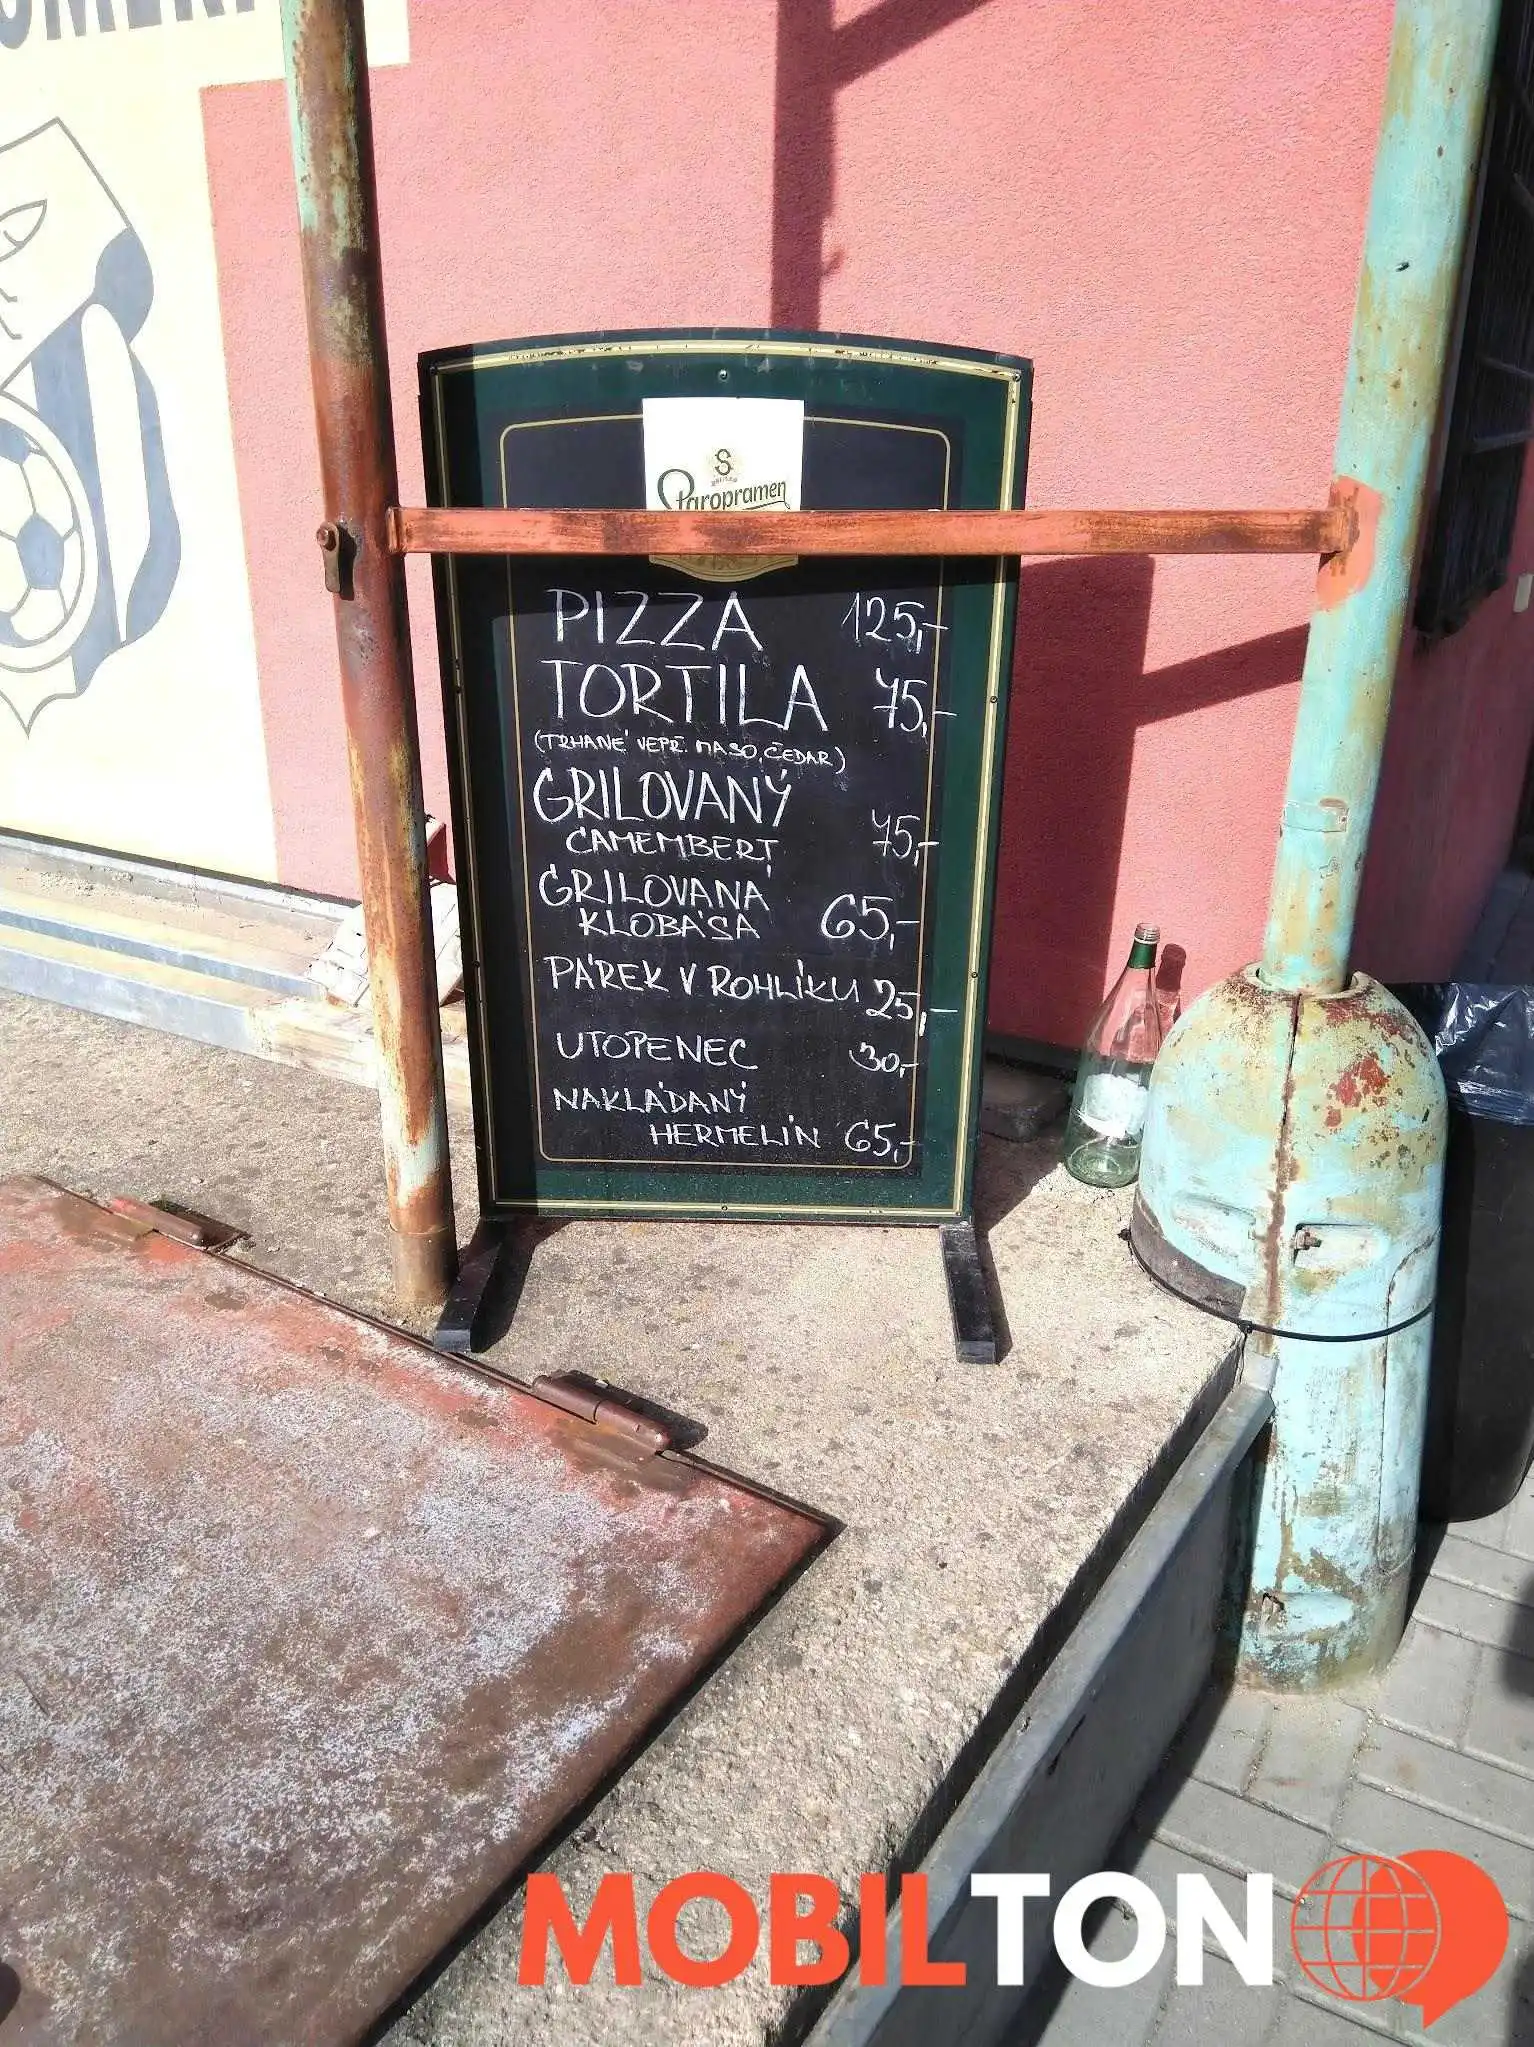 Staropramen
PIZZA 125,-
TORTILA 75,-
(TRHANÉ VEPŘ. MASO, ČEDAR)
GRILOVANÝ
CAMEMBERT 75,-
GRILOVANÁ
KLOBÁSA 65,-
PÁREK V ROHLÍKU 25,-
UTOPENEC 30,-
NAKLÁDANÝ
HERMELÍN 65,-
MOBILTON